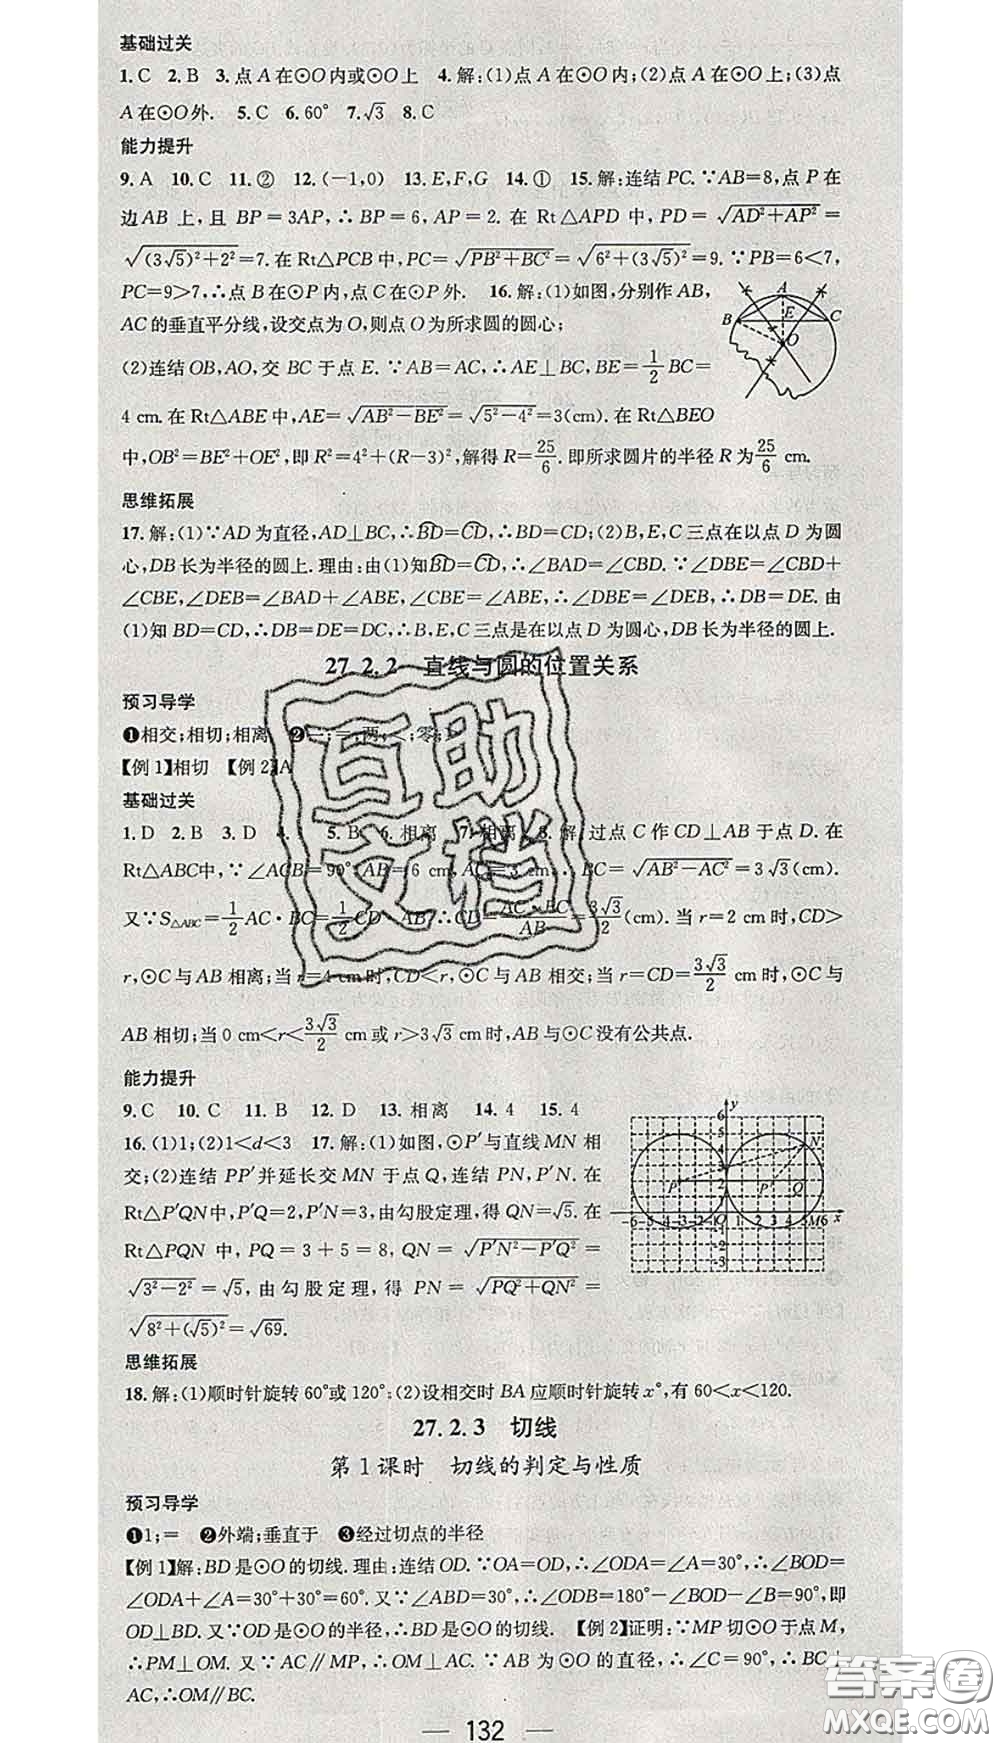 基础过关
1. C  2. B  3. 点 A 在⊙O 内或⊙O 上  4. 解:(1)点 A 在⊙O 内;(2)点 A 在⊙O 上;(3)点
A 在⊙O 外.  5. C  6. 60°  7. √3  8. C
能力提升
9. A  10. C  11. ②  12. (-1,0)  13. E,F,G  14. ①  15. 解:连结 PC. ∵AB=8,点 P 在
边 AB 上,且 BP=3AP,∴BP=6,AP=2. 在 Rt△APD 中,PD=√(AD²+AP²)=
√((3√5)²+2²)=7. 在 Rt△PCB 中,PC=√(PB²+BC²)=√(6²+(3√5)²)=9. ∵PB=6<7,
PC=9>7,∴点 B 在⊙P 内,点 C 在⊙P 外.  16. 解:(1)如图,分别作 AB,
AC 的垂直平分线,设交点为 O,则点 O 为所求圆的圆心;
(2)连结 OB,AO,交 BC 于点 E. ∵AB=AC,∴AE⊥BC,BE=1/2 BC=
4 cm. 在 Rt△ABE 中,AE=√(AB²-BE²)=√(5²-4²)=3(cm). 在 Rt△BEO
中,OB²=BE²+OE²,即 R²=4²+(R-3)²,解得 R=25/6. 即所求圆片的半径 R 为 25/6 cm.
A
B
E
C
O
思维拓展
17. 解:(1)∵AD 为直径,AD⊥BC,∴BD=CD,∴BD=CD;(2)B,E,C 三点在以点 D 为圆
心,DB 长为半径的圆上. 理由:由(1)知BD=CD,∴∠BAD=∠CBD. ∵∠DBE=∠CBD+
∠CBE,∠DEB=∠BAD+∠ABE,∠CBE=∠ABE,∴∠DBE=∠DEB,∴DB=DE. 由
(1)知 BD=CD,∴DB=DE=DC,∴B,E,C 三点是在以点 D 为圆心,DB 长为半径的圆上.
27. 2. 2  直线与圆的位置关系
预习导学
❶相交;相切;相离  ❷一;=;两;<;零;
【例 1】相切  【例 2】A
基础过关
1. D  2. B  3. D  4.  5. B  6. 相离  7. 相离  8. 解:过点 C 作 CD⊥AB 于点 D. 在
Rt△ABC中,∵∠ACB=90°,AB=6 cm,AC=3 cm,∴BC=√(AB²-AC²)=3√3(cm).
又∵S△ABC=1/2 AC·BC=1/2 CD·AB,∴CD=AC·BC/AB=3√3/2(cm). 当 r=2 cm 时,CD>
r,⊙C 与 AB 相离;当 r=4 cm 时,CD<r,⊙C 与 AB 相交;当 r=CD=3√3/2 cm 时,⊙C 与
AB 相切;当 0 cm<r<3√3/2 cm 或 r>3√3 cm 时,AB 与⊙C 没有公共点.
能力提升
9. C  10. C  11. B  12. D  13. 相离  14. 4  15. 4
16. (1)1;(2)1<d<3  17. 解:(1)如图,⊙P′与直线 MN 相
交;(2)连结 PP′并延长交 MN 于点 Q,连结 PN,P′N. 在
Rt△P′QN 中,P′Q=2,P′N=3,由勾股定理,得 QN=√5. 在
Rt△PQN 中,PQ=3+5=8,QN=√(P′N²-P′Q²)=
√(3²-2²)=√5,由勾股定理,得 PN=√(PQ²+QN²)=
√(8²+(√5)²)=√69.
思维拓展
18. 解:(1)顺时针旋转 60°或 120°;(2)设相交时 BA 应顺时针旋转 x°,有 60<x<120.
27. 2. 3  切线
第 1 课时  切线的判定与性质
预习导学
❶1;=  ❷外端;垂直于  ❸经过切点的半径
【例 1】解:BD 是⊙O 的切线. 理由:连结 OD. ∵OA=OD,∴∠ODA=∠A=30°,∴∠BOD=
∠ODA+∠A=30°+30°=60°. 又∵∠ABD=30°,∴∠ODB=180°-∠BOD-∠B=90°,即
OD⊥BD. 又∵OD 是⊙O 的半径,∴BD 是⊙O 的切线.  【例 2】证明:∵MP 切⊙O 于点 M,
∴PM⊥OM. 又∵AC∥MP,∴OM⊥AC. ∵AB 为⊙O 的直径,∴∠C=90°,∴BC⊥
AC,∴OM∥BC.
132
互助文档
答案圈
MXQE.COM